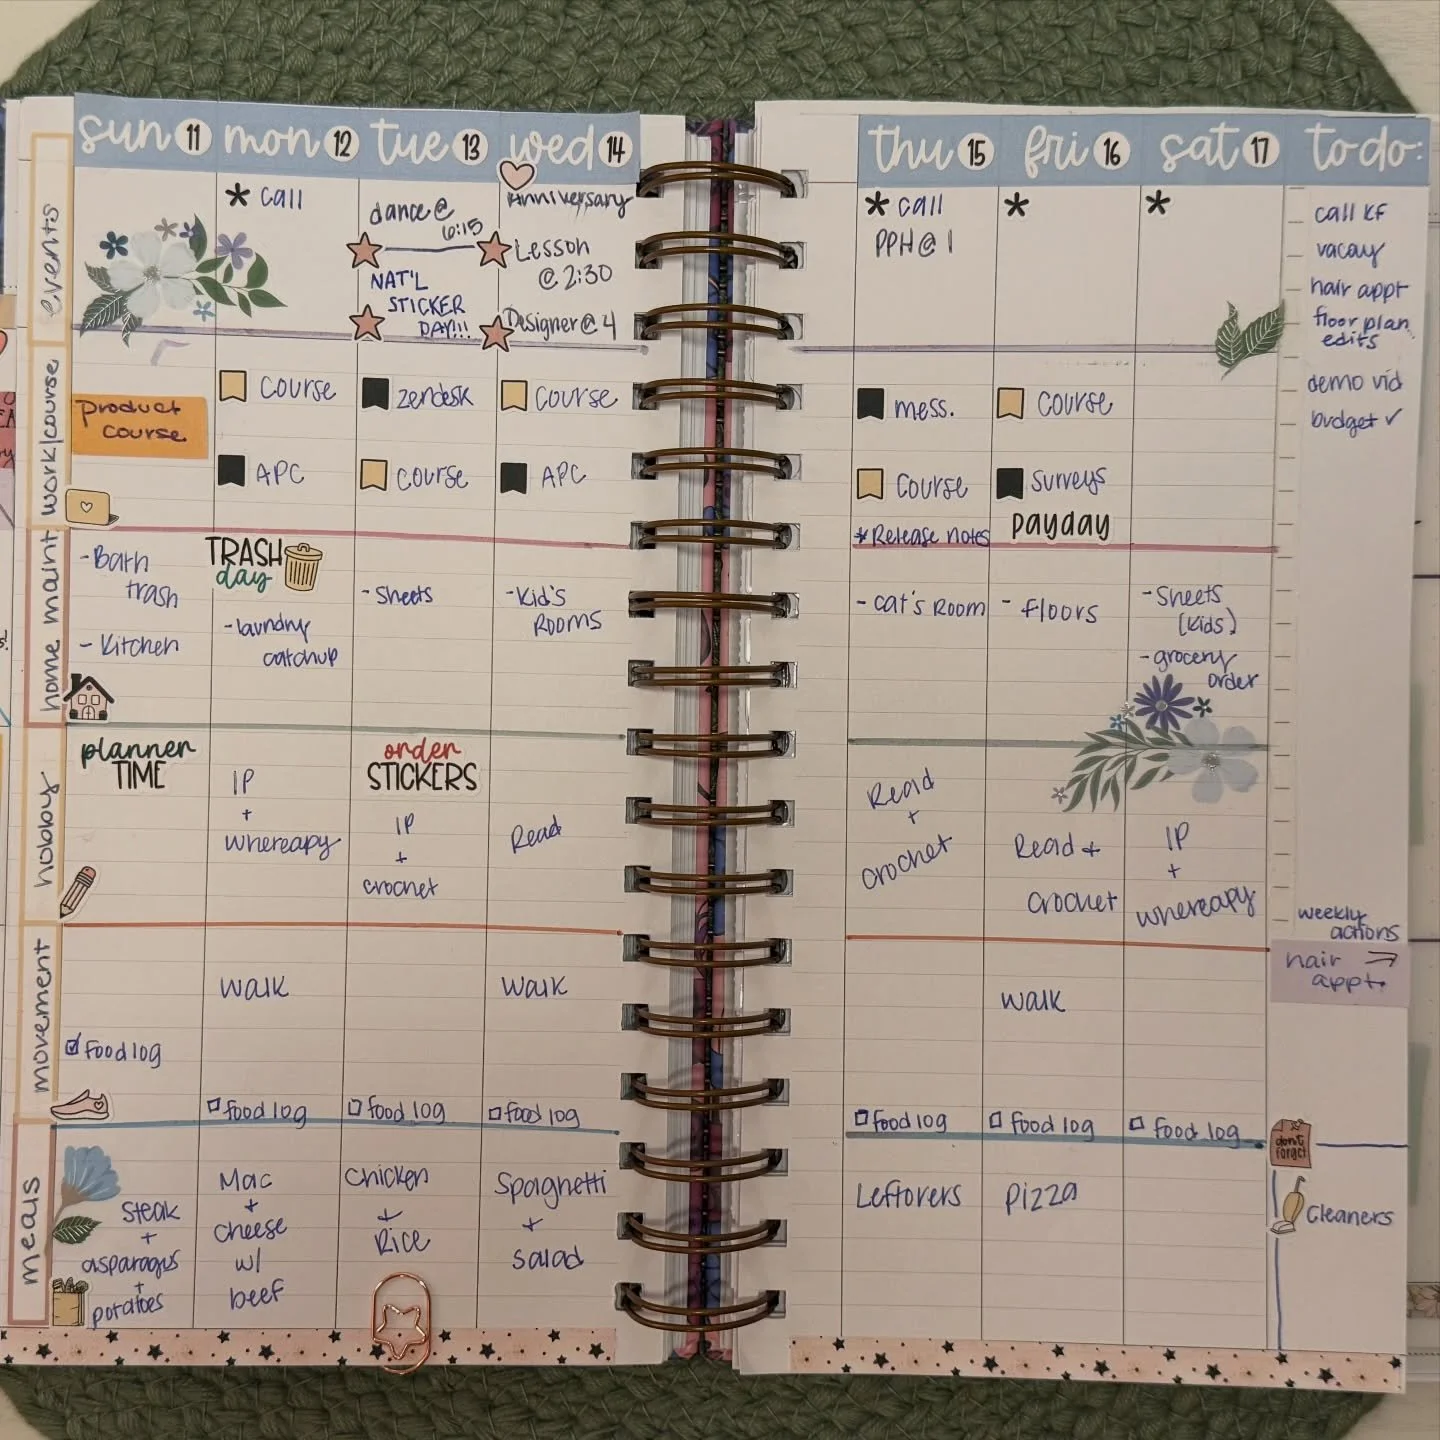 sun 11
mon 12
tue 13
wed 14
thu 15
fri 16
sat 17
to do:
events
* call
dance @
6:15
NAT'L
STICKER
DAY!!!
Anniversary
Lesson
@ 2:30
Designer @ 4
* call
PPH @ 1
*
*
call KF
vacay
hair appt
floor plan
edits
demo vid
budget ✓
work/course
product
course
course
APC
zendesk
course
course
APC
mess.
course
* Release notes
course
surveys
payday
home maint.
- Bath
trash
- Kitchen
TRASH
day
- laundry
catchup
- Sheets
- Kid's
Rooms
- cat's Room
- floors
- Sheets
(kids)
- grocery
order
hobby
planner
TIME
IP
+
whereapy
order
STICKERS
IP
+
crochet
Read
Read
+
crochet
Read +
crochet
IP
+
whereapy
weekly
actions
hair →
appt.
movement
☑ food log
walk
☐ food log
☐ food log
walk
☐ food log
☐ food log
walk
☐ food log
☐ food log
don't
forget
cleaners
meals
steak
+
asparagus
+
potatoes
Mac
+
cheese
w/
beef
Chicken
+
Rice
Spaghetti
+
salad
Leftovers
pizza